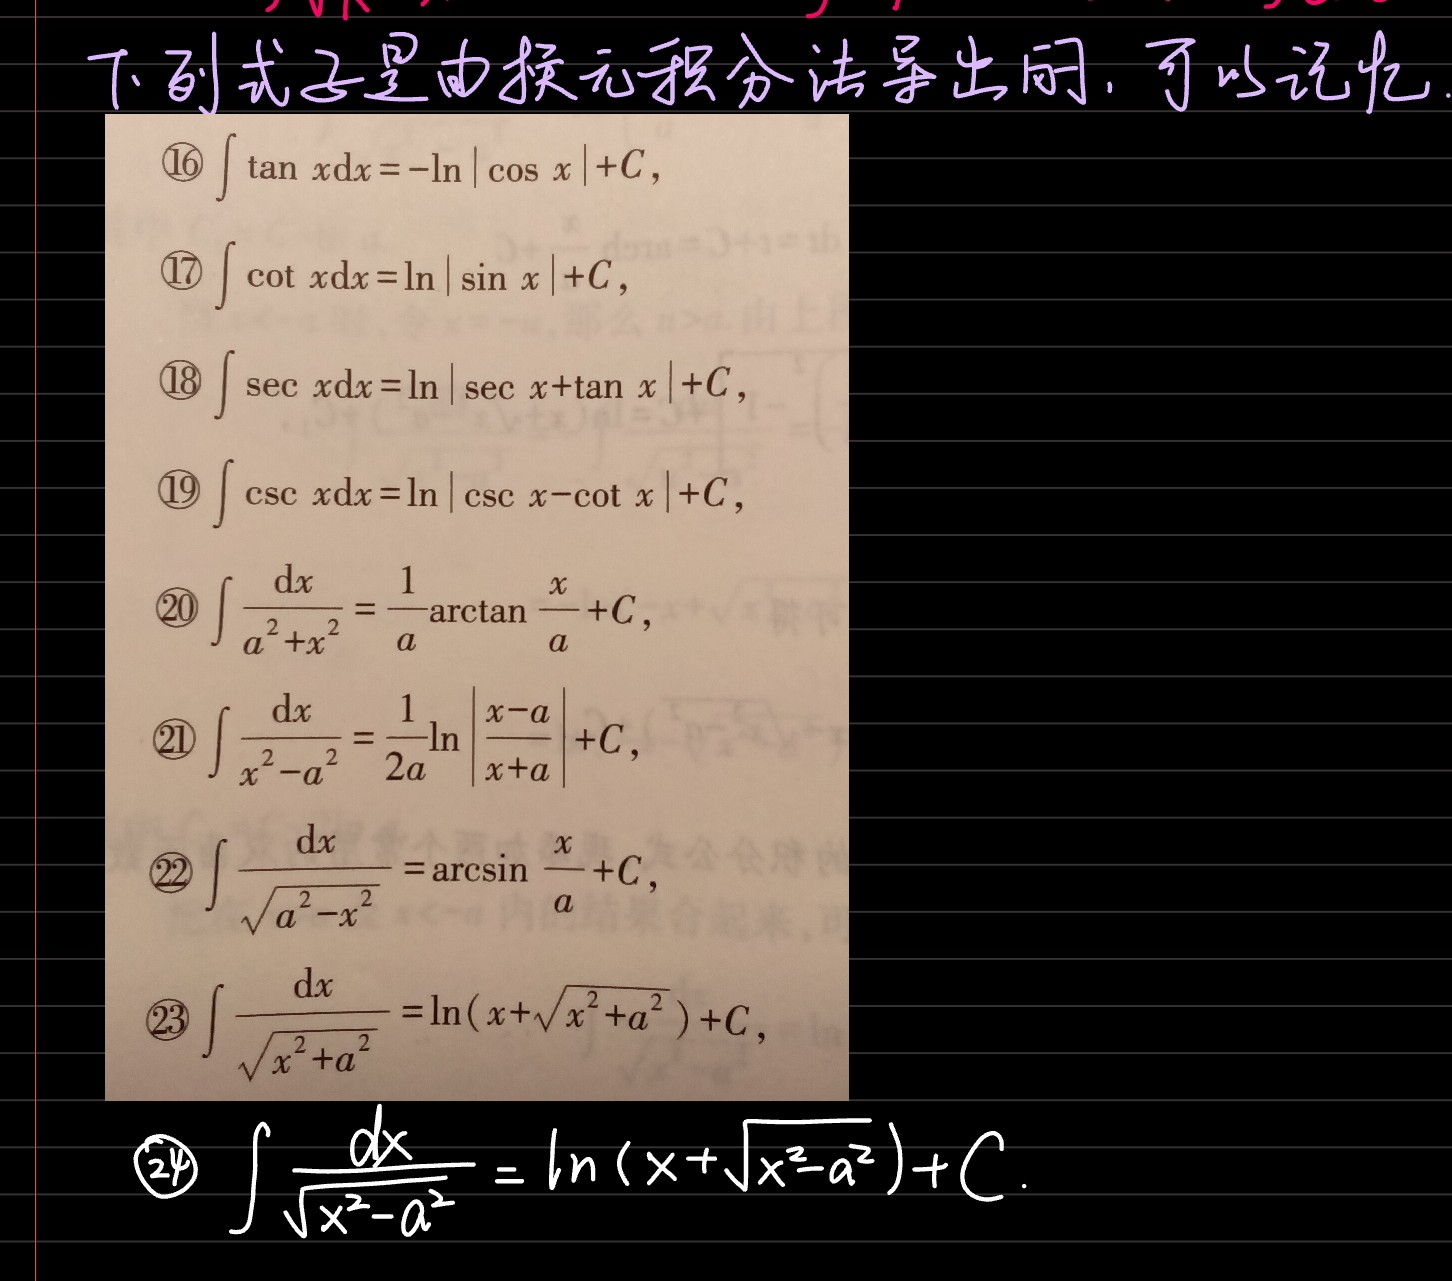 下列式子是由换元积分法导出的,可以记忆.
⑯ ∫ tan xdx = -ln|cos x|+C,
⑰ ∫ cot xdx = ln|sin x|+C,
⑱ ∫ sec xdx = ln|sec x+tan x|+C,
⑲ ∫ csc xdx = ln|csc x-cot x|+C,
⑳ ∫ dx/(a²+x²) = 1/a arctan x/a +C,
㉑ ∫ dx/(x²-a²) = 1/2a ln|(x-a)/(x+a)| +C,
㉒ ∫ dx/√(a²-x²) = arcsin x/a +C,
㉓ ∫ dx/√(x²+a²) = ln(x+√(x²+a²))+C,
㉔ ∫ dx/√(x²-a²) = ln(x+√(x²-a²))+C.